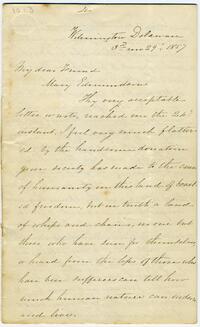 Wilmington Delaware
3d mo 29th 1857
My dear Friend
Mary Edmundson
Thy very acceptable
letter reached me the
instant. I felt very much flatter
ed by the handsome donation
your society has made to the cause
of humanity in this land of boast
ed freedom, but in truth a land
of whips and chains, no one but
those who have seen for themselves
or heard from the lips of those who
have been sufferers can tell how
much human nature can under
and live.